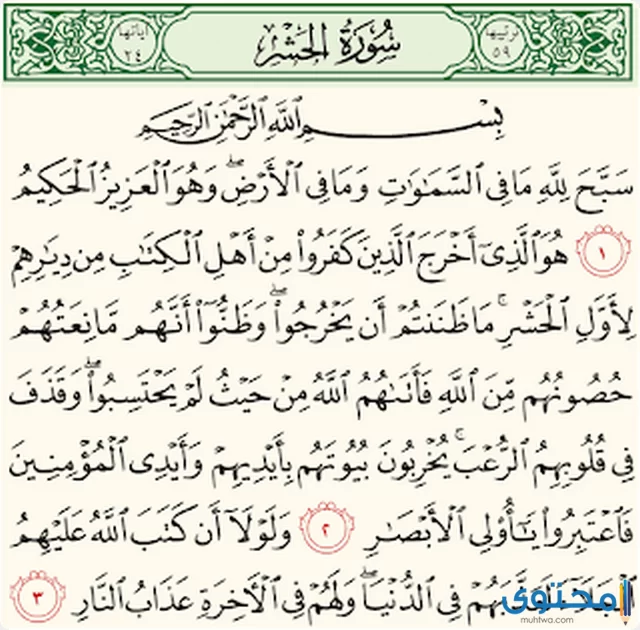 ترتيبها ٥٩
سُورَةُ الحَشْرِ
آياتها ٢٤
بِسْمِ اللَّهِ الرَّحْمَٰنِ الرَّحِيمِ
سَبَّحَ لِلَّهِ مَا فِي السَّمَٰوَٰتِ وَمَا فِي الْأَرْضِۖ وَهُوَ الْعَزِيزُ الْحَكِيمُ
١ هُوَ الَّذِيٓ أَخْرَجَ الَّذِينَ كَفَرُوا۟ مِنْ أَهْلِ الْكِتَٰبِ مِن دِيَٰرِهِمْ
لِأَوَّلِ الْحَشْرِۚ مَا ظَنَنتُمْ أَن يَخْرُجُوا۟ۖ وَظَنُّوٓا۟ أَنَّهُم مَّانِعَتُهُمْ
حُصُونُهُم مِّنَ اللَّهِ فَأَتَىٰهُمُ اللَّهُ مِنْ حَيْثُ لَمْ يَحْتَسِبُوا۟ۖ وَقَذَفَ
فِي قُلُوبِهِمُ الرُّعْبَۚ يُخْرِبُونَ بُيُوتَهُم بِأَيْدِيهِمْ وَأَيْدِي الْمُؤْمِنِينَ
فَاعْتَبِرُوا۟ يَٰٓأُو۟لِي الْأَبْصَٰرِ ٢ وَلَوْلَآ أَن كَتَبَ اللَّهُ عَلَيْهِمُ
لَعَذَّبَهُمْ فِي الدُّنْيَاۖ وَلَهُمْ فِي الْآخِرَةِ عَذَابُ النَّارِ ٣
محتوى
muhtwa.com